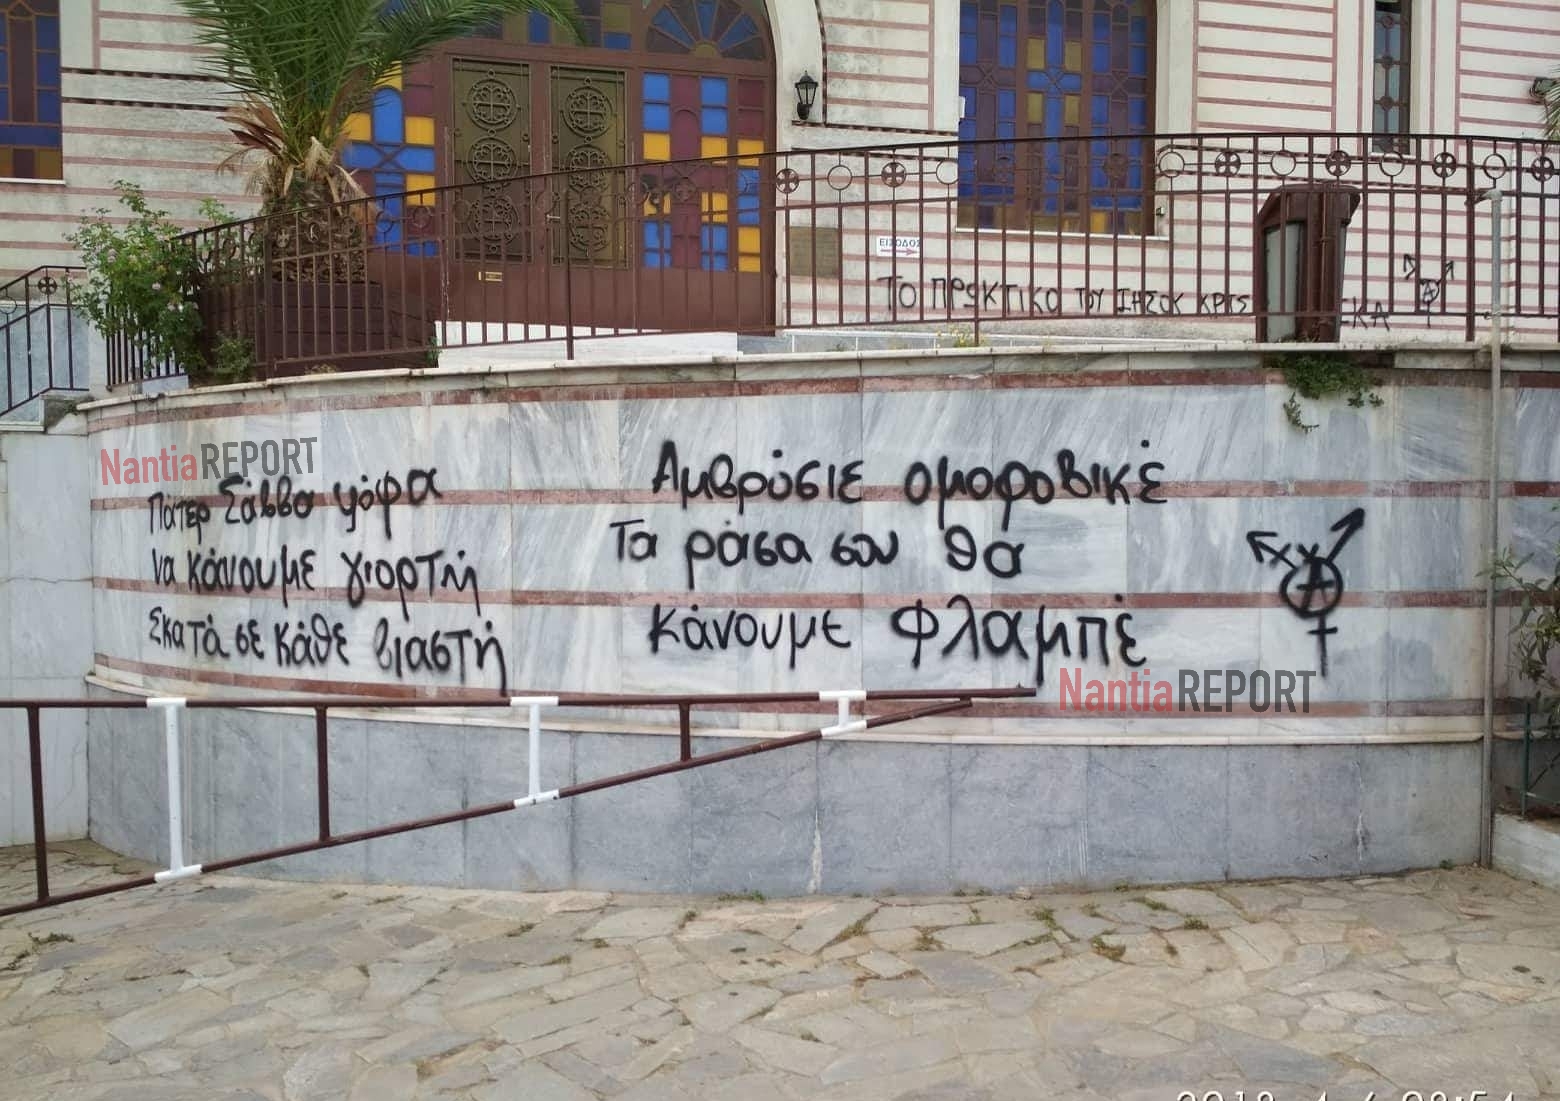 ΕΙΣΟΔΟΣ
ΤΟ ΠΡΩΚΤΙΚΟ ΤΟΥ ΙΗΣΟΥ
NantiaREPORT
Πάτερ Σάββα ψόφα
να κάνουμε γιορτή
Σκατά σε κάθε βιαστή
Αμβρόσιε ομοφοβικέ
Τα ράσα σου θα
κάνουμε Φλαμπέ
NantiaREPORT